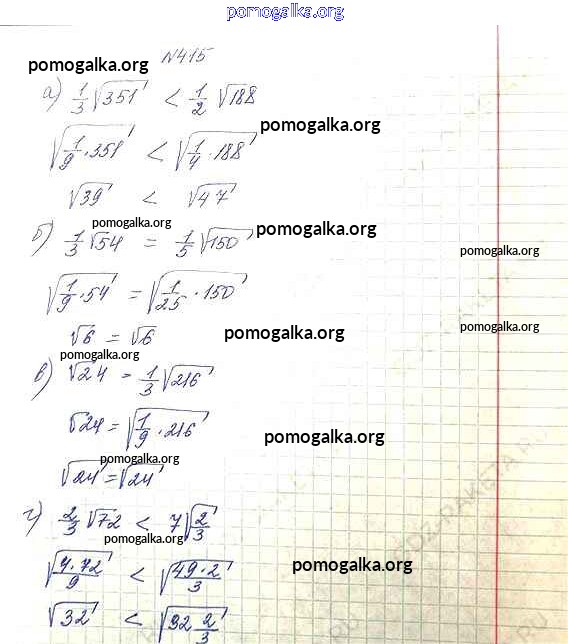 pomogalka.org
N415
pomogalka.org
а) 1/3 √351 < 1/2 √188
pomogalka.org
√(1/9 · 351) < √(1/4 · 188)
√39 < √47
pomogalka.org
pomogalka.org
б) 1/3 √54 = 1/5 √150
pomogalka.org
√(1/9 · 54) = √(1/25 · 150)
pomogalka.org
√6 = √6
pomogalka.org
pomogalka.org
в) √24 = 1/3 √216
√24 = √(1/9 · 216)
pomogalka.org
pomogalka.org
√24 = √24
г) 2/3 √72 < 7 √(2/3)
pomogalka.org
√(4·72/9) < √(49·2/3)
pomogalka.org
√32 < √(32 2/3)
GDZ-RAKETA.RU